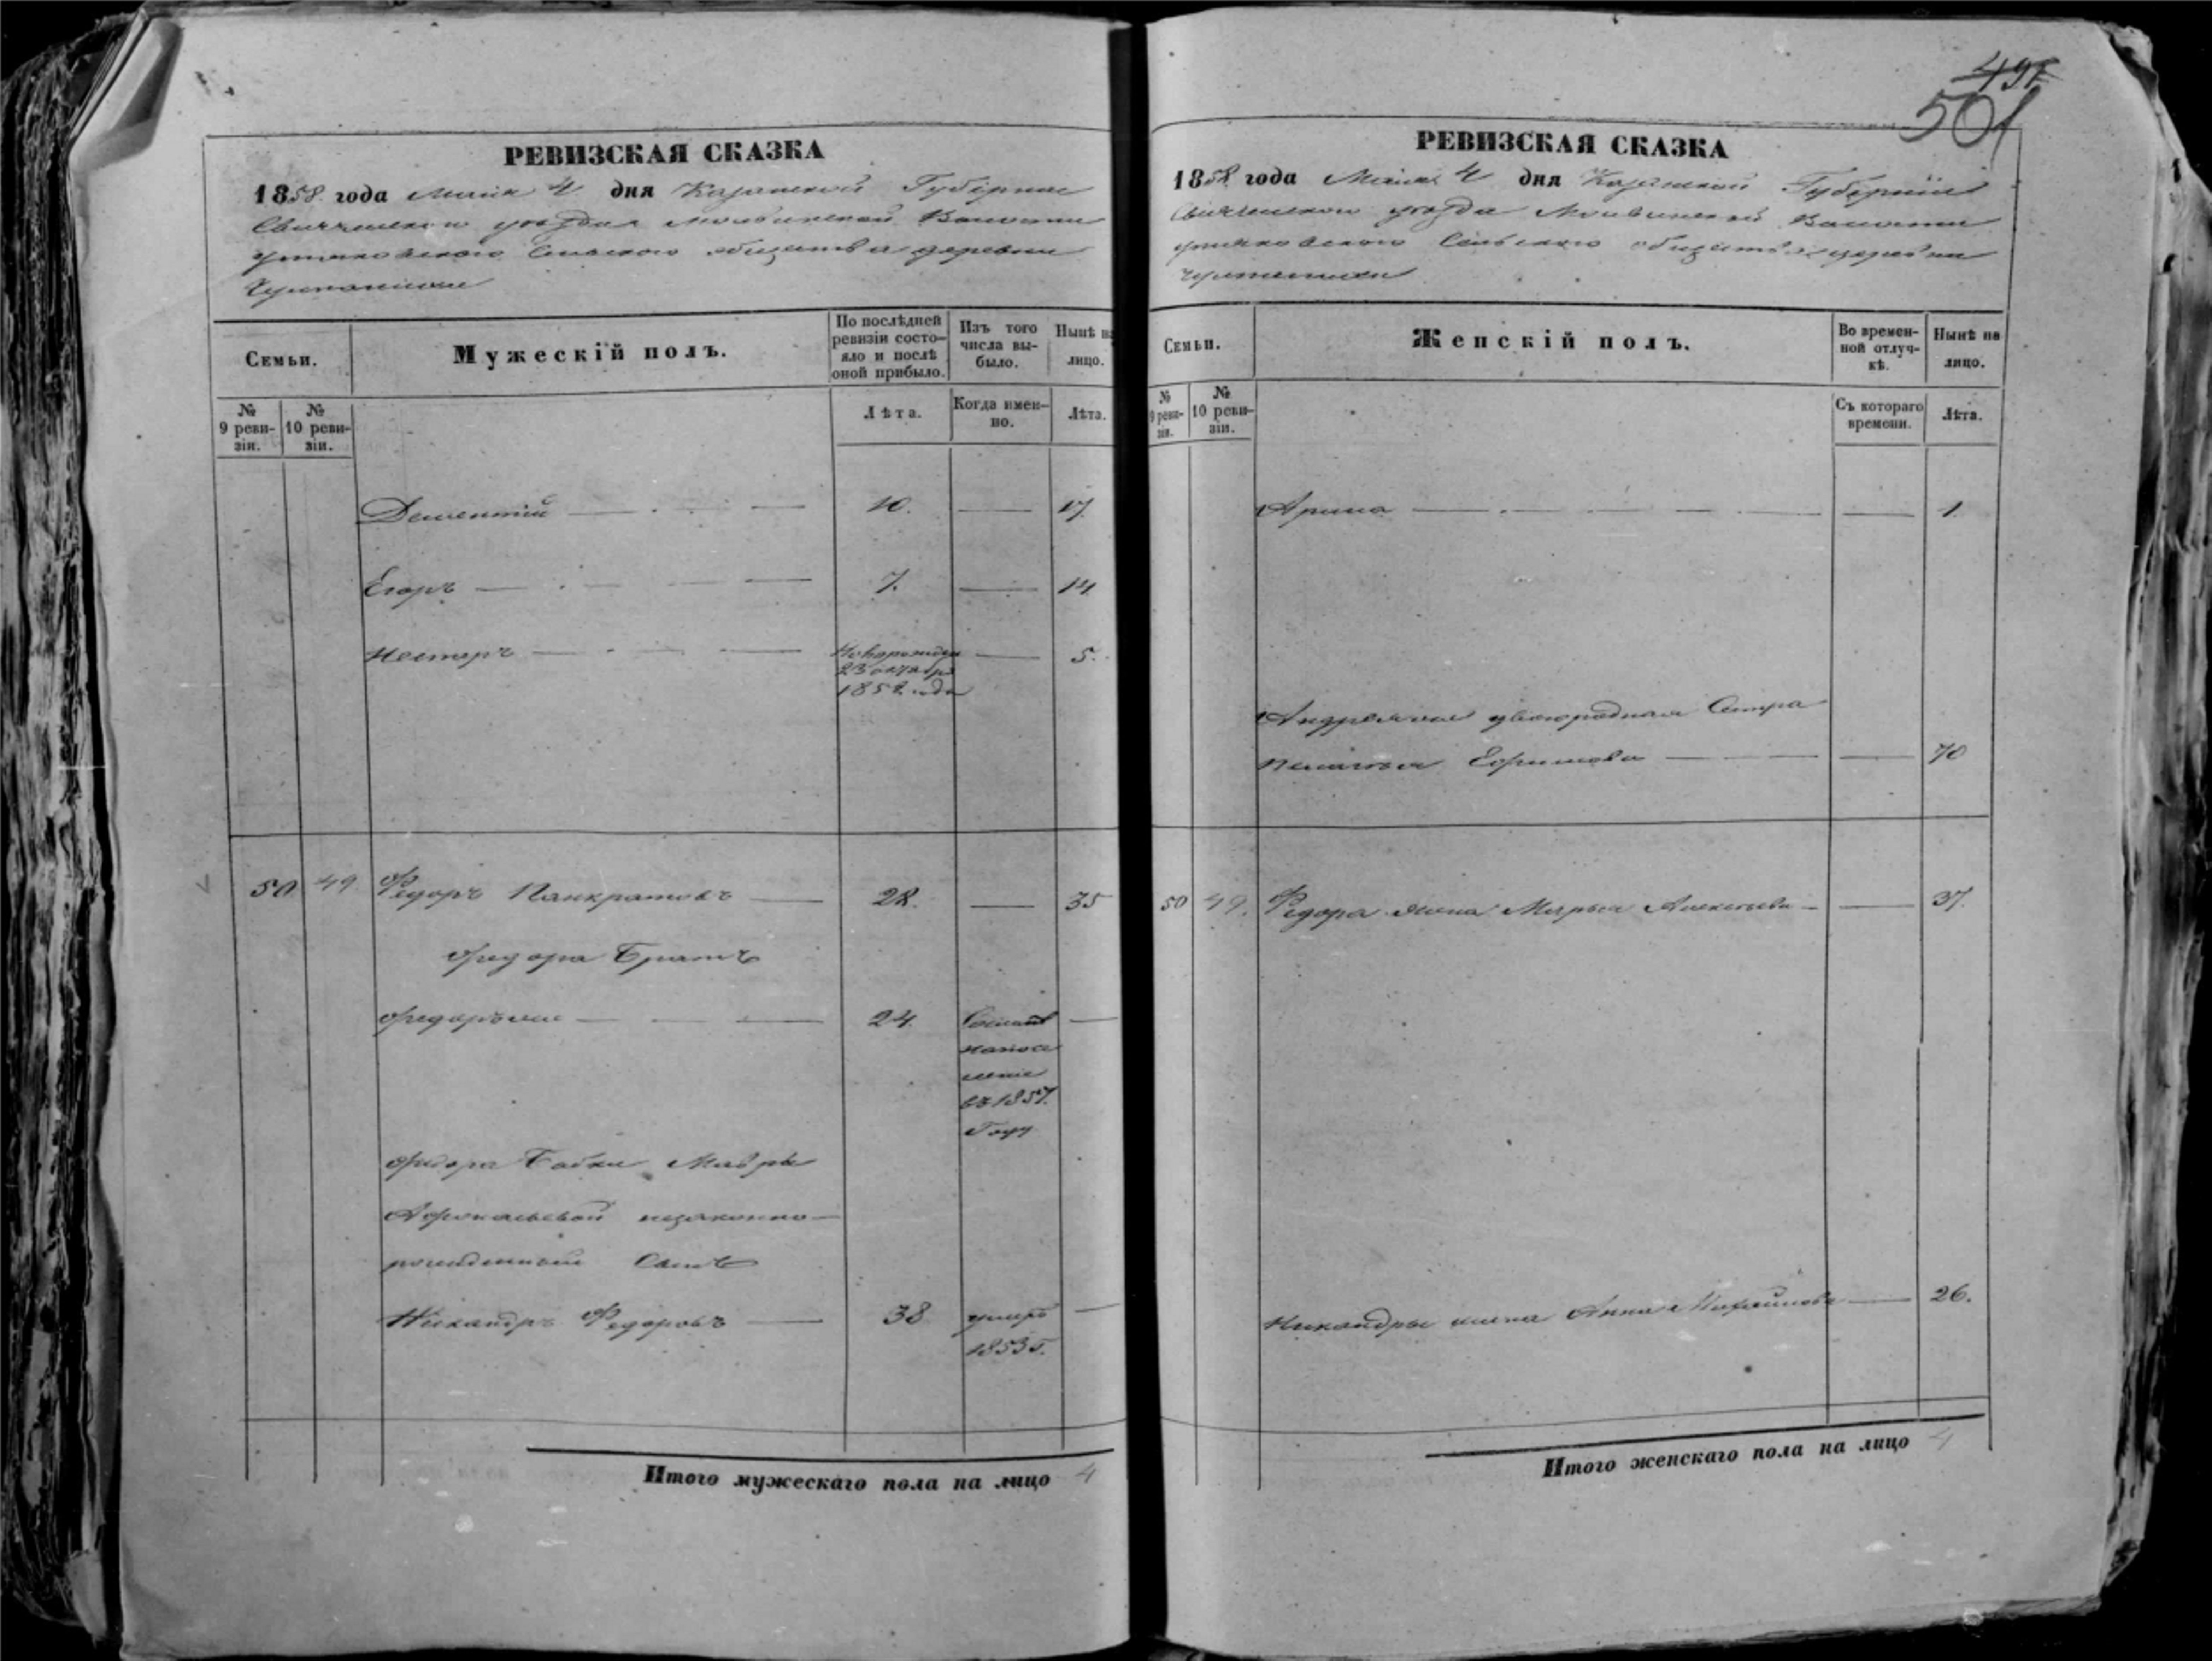 501
РЕВИЗСКАЯ СКАЗКА
1858 года Маія 4 дня Казанской Губерніи
уезда Волости
Сельского общества деревни
Семьи.
Мужескій полъ.
По послѣдней ревизіи состояло и послѣ оной прибыло.
Изъ того числа выбыло.
Нынѣ на лицо.
№ 9 ревизіи.
№ 10 ревизіи.
Лѣта.
Когда именно.
Лѣта.
Дементій 10. 17
Егоръ 7. 14
Нестеръ Новорожден 5.
23 октября
185 года
50 49 Федоръ Панкратовъ 28. 35
Федора Братъ
24. Сосланъ
на посе
леніе
въ 1857.
Году
Федора Бабки Мавры
незаконно-
рожденный Сынъ
Никандръ Федоровъ 38 умеръ
1853 г.
Итого мужескаго пола на лицо 4
РЕВИЗСКАЯ СКАЗКА
1858 года Маія 4 дня Казанской Губерніи
уезда Волости
Сельского общества деревни
Семьи.
Женскій полъ.
Во временной отлучкѣ.
Нынѣ на лицо.
№ 9 ревизіи.
№ 10 ревизіи.
Съ котораго времени.
Лѣта.
Арина 1.
двоюродная Сестра
Пелагея Ефимова 70
50 49. Федора жена Марья Алексеева 37.
Никандры жена Анна Михайлова 26.
Итого женскаго пола на лицо 4